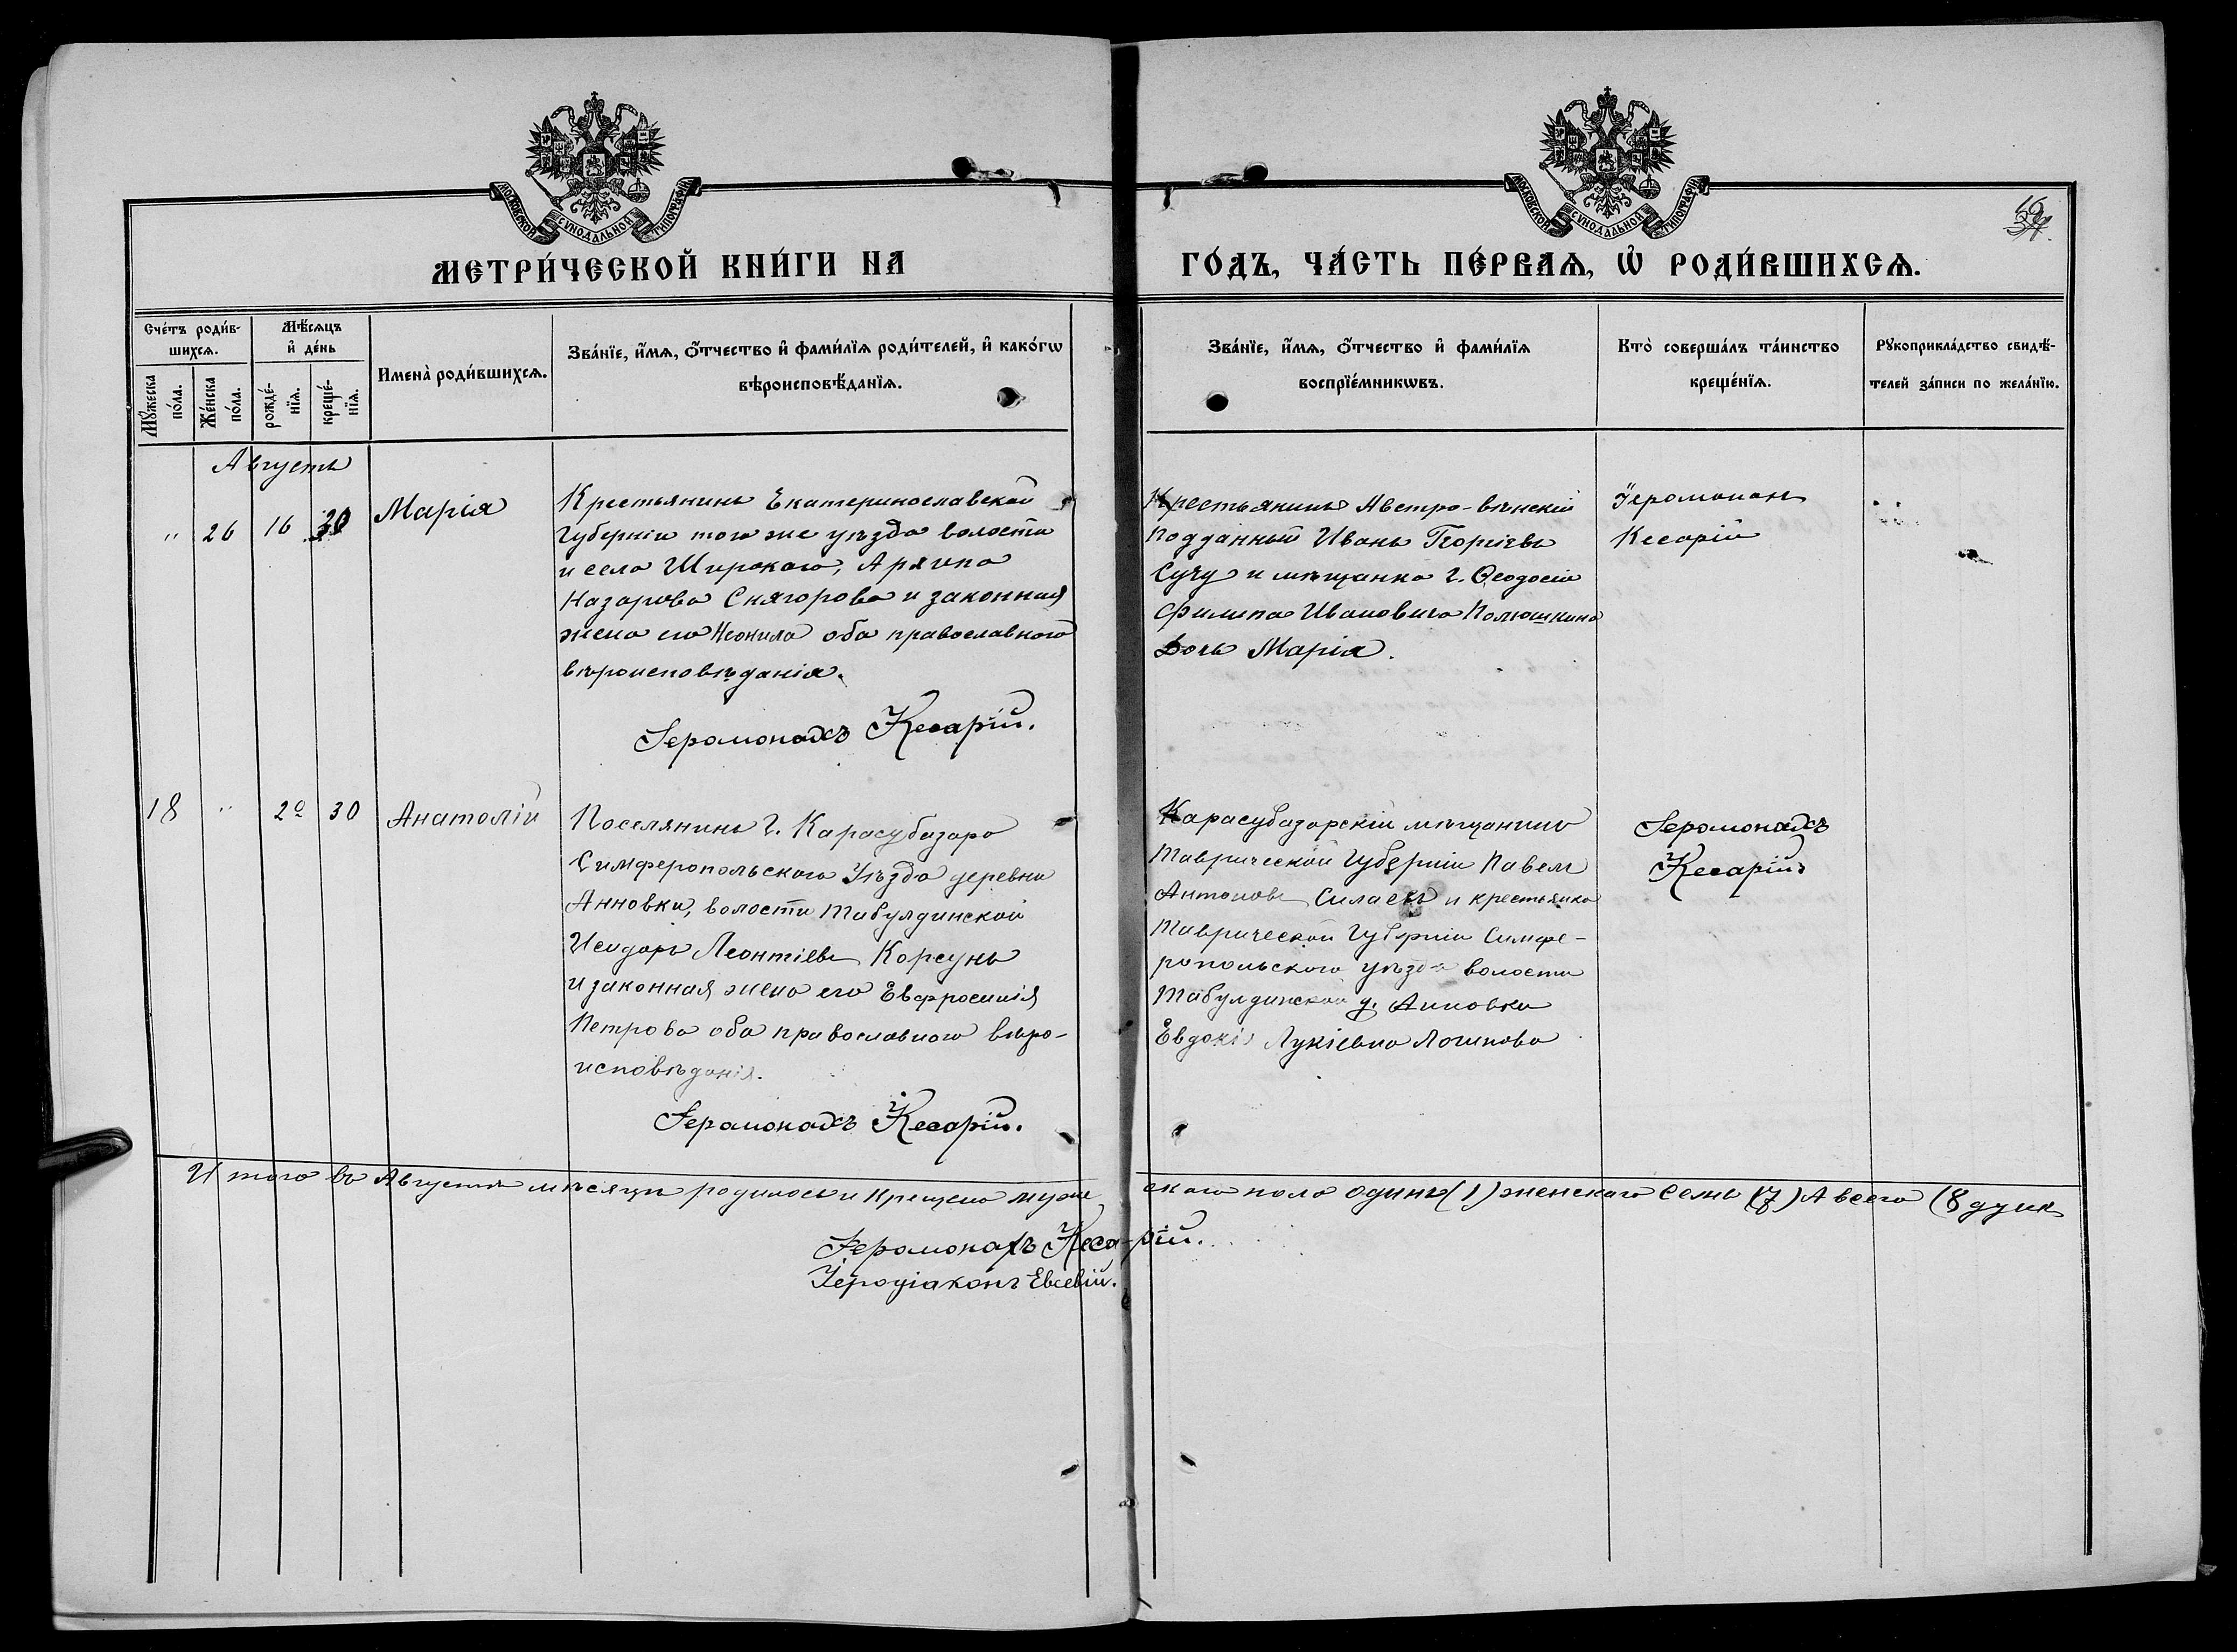 МОСКОВСКОЙ СѴНОДАЛЬНОЙ ТИПОГРАФІИ
МОСКОВСКОЙ СѴНОДАЛЬНОЙ ТИПОГРАФІИ
МЕТРИ́ЧЕСКОЙ КНИ́ГИ НА
ГО́ДЪ, ЧА́СТЬ ПЕ́РВАѦ, Ѡ҆ РОДИ́ВШИХСѦ.
Сче́тъ роди́в-
шихсѧ.
Мꙋ́жеска
по́ла.
Же́нска
по́ла.
Мѣ́сѧцъ
и҆ де́нь
рожде́-
нїѧ.
креще́-
нїѧ.
Имена̀ роди́вшихсѧ.
Зва́нїе, и҆́мѧ, ѻ҆́тчество и҆ фами́лїѧ роди́телей, и҆ како́гѡ
вѣроисповѣ́данїѧ.
Зва́нїе, и҆́мѧ, ѻ҆́тчество и҆ фами́лїѧ
воспрїе́мникѡвъ.
Кто̀ соверша́лъ та́инство
креще́нїѧ.
Рꙋкоприкла́дство свидѣ́-
телей за́писи по жела́нїю.
Августъ
" 26 16 30 Марія
Крестьянинъ Екатеринославской
Губерніи того же уѣзда волости
и села Широкаго,
Назарова и законная
жена его Неонила оба православнаго
вѣроисповѣданія.
Іеромонахъ Кесарій.
Крестьянинъ Австро-вѣнскій
подданный Иванъ Георгіевъ
Сучу и мѣщанка г. Ѳеодосіи
Филипа Ивановича Полюшкина
Дочь Марія.
Іеромонах
Кесарій
18 " 20 30 Анатолій
Поселянинъ г. Карасубазара
Симферопольскаго Уѣзда деревни
Анновки, волости Табулдинской
Исидоръ Леонтіевъ Корсунь
и законная жена его Евфросинія
Петрова оба православнаго вѣро-
исповѣданія.
Іеромонахъ Кесарій.
Карасубазарскій мѣщанинъ
Таврической Губерніи Павелъ
Антоновъ Силаевъ и крестьянка
Таврической Губерніи Симфе-
ропольскаго уѣзда волости
Табулдинской д. Анновки
Евдокія Лукіевна Логинова
Іеромонахъ
Кесарій.
Итого въ Августѣ мѣсяцѣ родилось и Крещено мужескаго пола одинъ (1) женскаго семь (7) А всего (8 душъ
Іеромонахъ Кесарій.
Іеродіаконъ Евсевій.